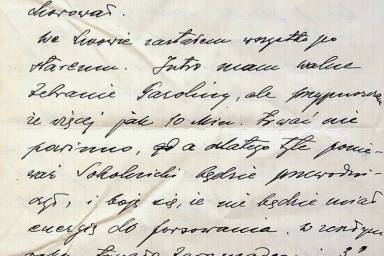 chorował.
We Lwowie zastałem wszystko po
staremu. Jutro mam walne
zebranie Gazoliny, ale przypuszczam
że więcej jak 10 min. trwać nie
powinno, a dlatego tyle ponie-
waż Sokolnicki będzie przewodni-
czył, i boję się, że nie będzie miał
energię do forsowania. w zeszłym
roku